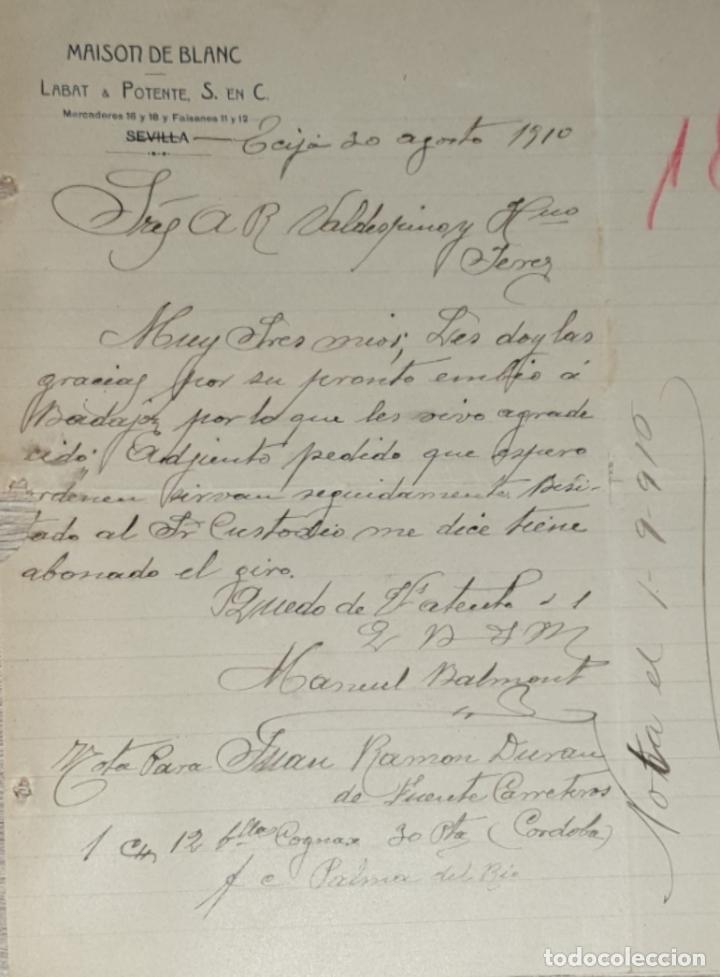 MAISON DE BLANC
LABAT & POTENTE, S. EN C.
Mercaderes 16 y 18 y Faisanes 11 y 12
SEVILLA
Ecija 20 agosto 1910
Sres A R Valdespino y Hno
Jerez
Muy Sres mios; Les doy las
gracias por su pronto embio á
Badajoz por lo que les vivo agrade
cido; Adjunto pedido que espero
ordenen sirvan seguidamente Besi-
tado al Sr Custodio me dice tiene
abonado el giro.
Quedo de Vs atento s s
Q B S M
Manuel Balmont
Nota Para Juan Ramon Duran
de Fuente Carreteros
1 c/ 12 bllas Cognax 30 Pts (Cordoba)
f c Palma del Rio
Nota el 1-9-910
todocoleccion